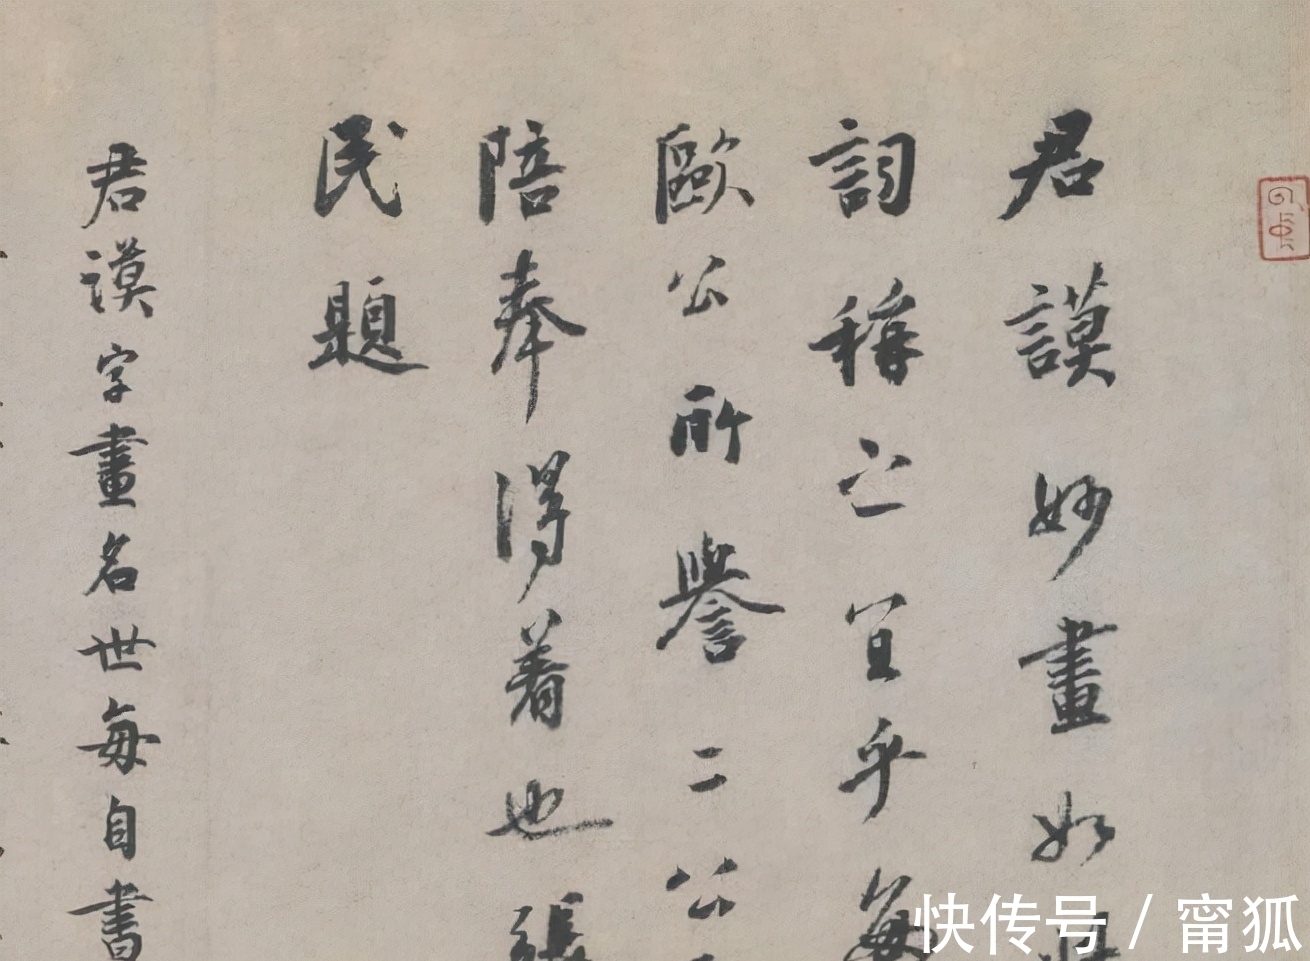 君謨妙畫如
詞稱之宜乎每
歐公所譽二公
陪奉得着也張
民題
君謨字畫名世每自書
快传号 / 甯狐